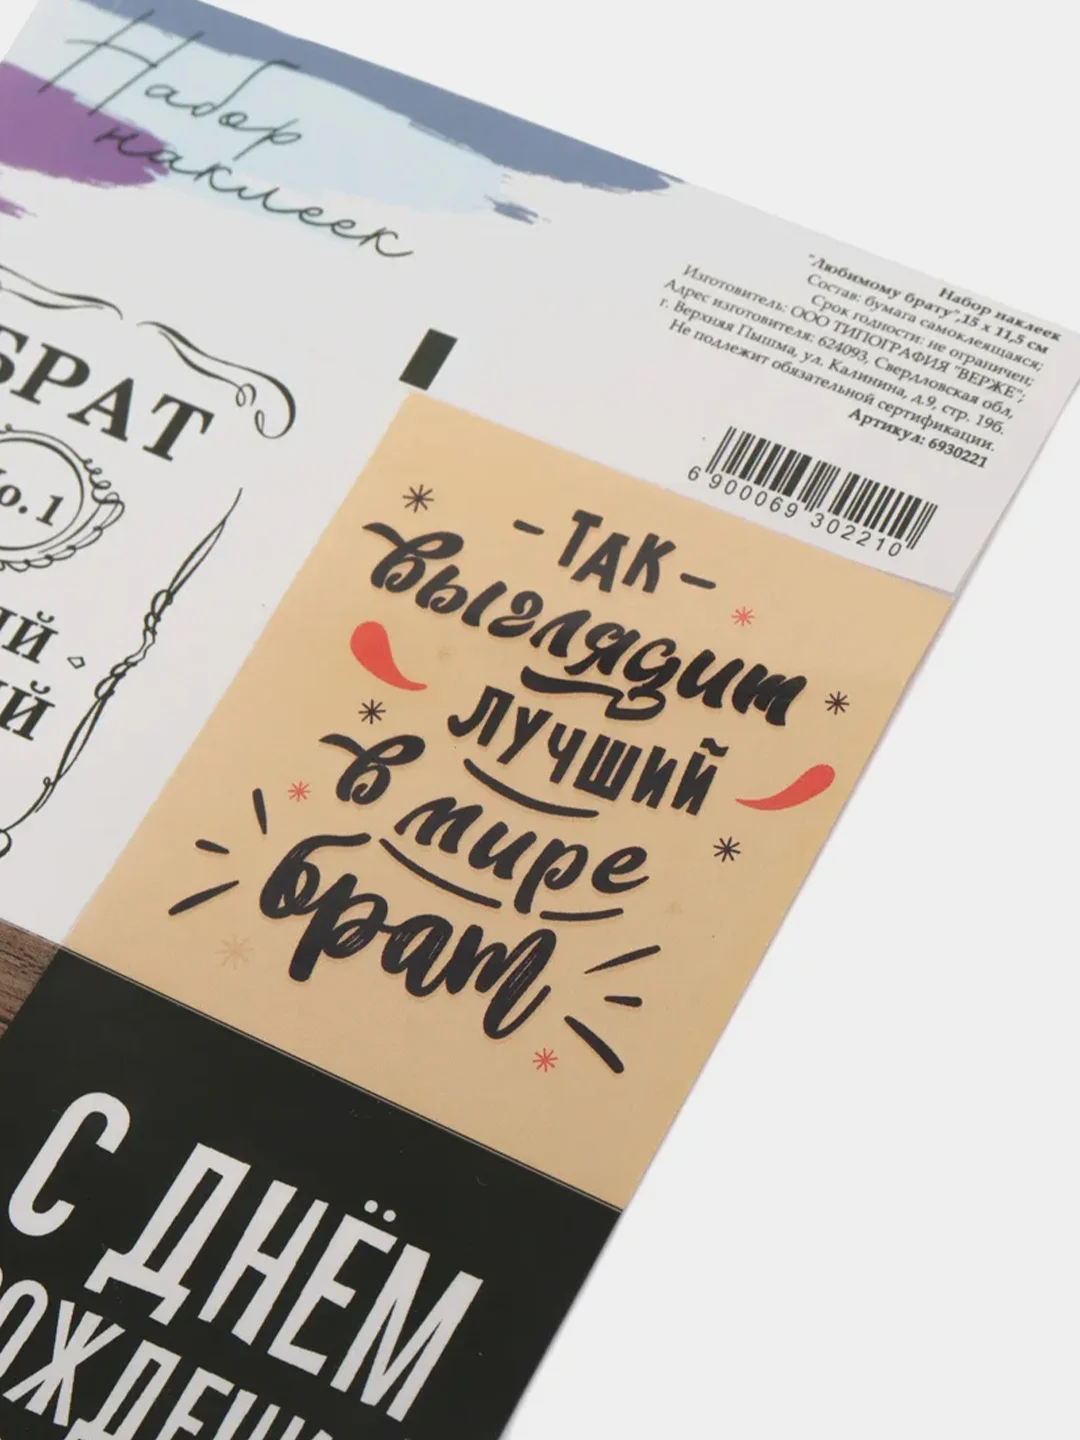 Набор
наклеек
Набор наклеек
"Любимому брату",15 х 11,5 см
Состав: бумага самоклеящаяся;
Срок годности: не ограничен;
Изготовитель: ООО ТИПОГРАФИЯ "ВЕРЖЕ";
Адрес изготовителя: 624093, Свердловская обл,
г. Верхняя Пышма, ул. Калинина, д.9, стр. 19б.
Не подлежит обязательной сертификации.
Артикул: 6930221
6 900069 302210
БРАТ
No.1
- ТАК -
выглядит
ЛУЧШИЙ
в мире
брат
С ДНЁМ